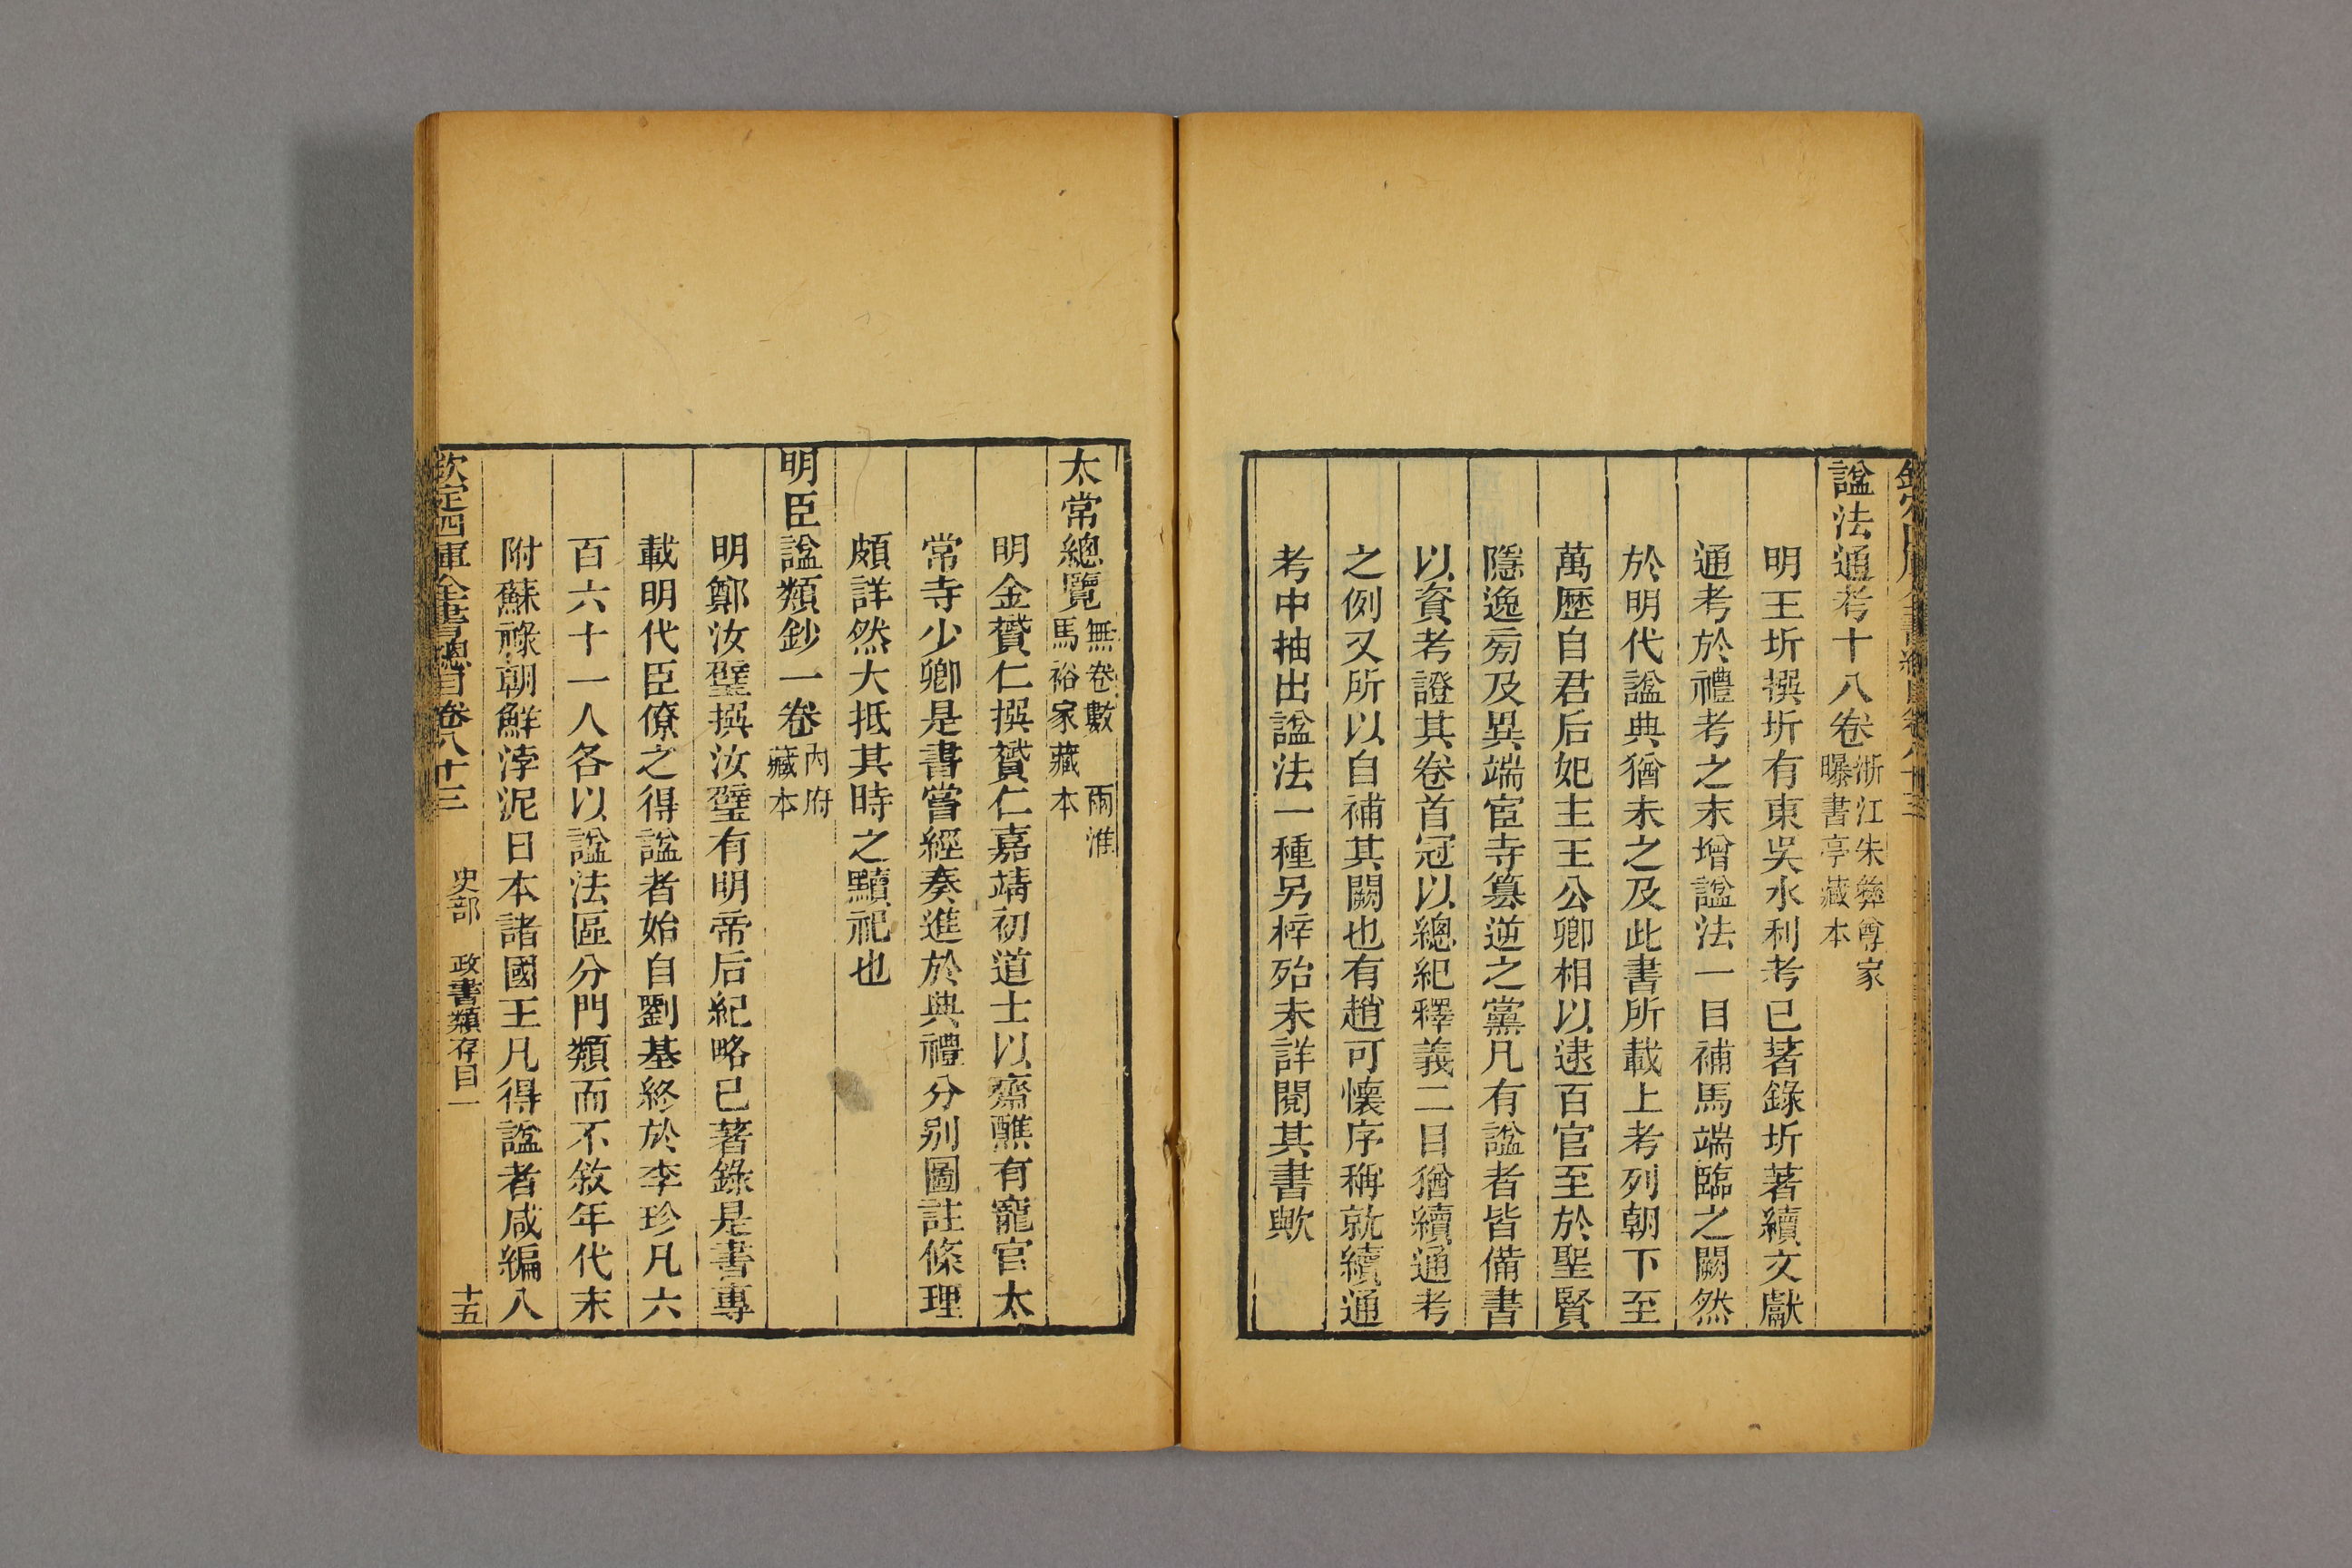 諡法通考十八卷浙江朱彝尊家曝書亭藏本
明王圻撰圻有東吳水利考已著錄圻著續文獻
通考於禮考之末增諡法一目補馬端臨之闕然
於明代諡典猶未之及此書所載上考列朝下至
萬歷自君后妃主王公卿相以逮百官至於聖賢
隱逸旁及異端宦寺篡逆之黨凡有諡者皆備書
以資考證其卷首冠以總紀釋義二目猶續通考
之例又所以自補其闕也有趙可懷序稱就續通
考中抽出諡法一種另梓殆未詳閱其書歟
太常總覽無卷數 兩淮馬裕家藏本
明金贇仁撰贇仁嘉靖初道士以齋醮有寵官太
常寺少卿是書嘗經奏進於典禮分别圖註條理
頗詳然大抵其時之黷祀也
明臣諡類鈔一卷內府藏本
明鄭汝璧撰汝璧有明帝后紀略已著錄是書專
載明代臣僚之得諡者始自劉基終於李珍凡六
百六十一人各以諡法區分門類而不敘年代末
附蘇祿朝鮮浡泥日本諸國王凡得諡者咸編入
欽定四庫全書總目卷八十三 史部 政書類存目一 十五